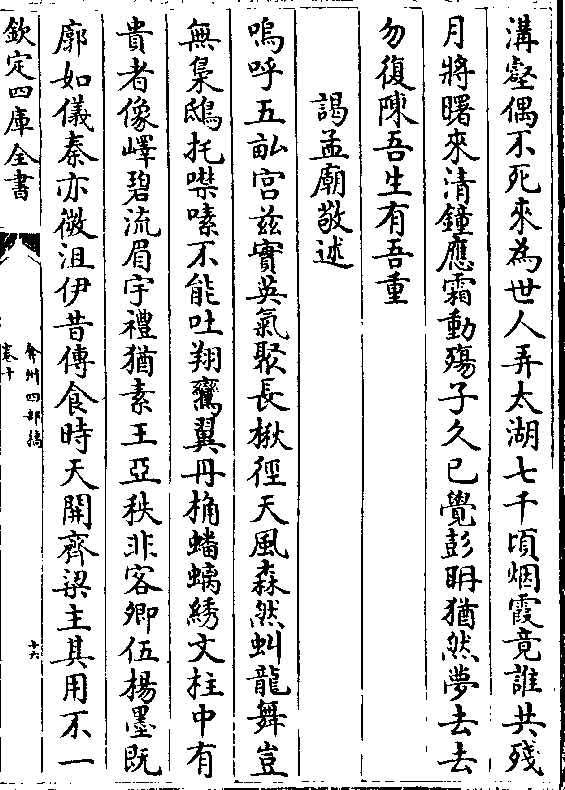 溝壑偶不死來為世人弄太湖七千頃烟霞竟誰共殘
月將曙來清鐘應霜動殤子久已覺彭聃猶然夢去去
勿復陳吾生有吾重
謁孟廟敬述
嗚呼五畝宮兹實英氣聚長楸徑天風森然虬龍舞豈
無梟鴟托噤嗉不能吐翔鸞翼丹桷蟠螭綉文柱中有
貴者像嶧碧流眉宇禮猶素王亞秩非客卿伍楊墨既
廓如儀秦亦微沮伊昔傳食時天開齊梁主其用不一
欽定四庫全書
弇州四部稿
卷十
十六